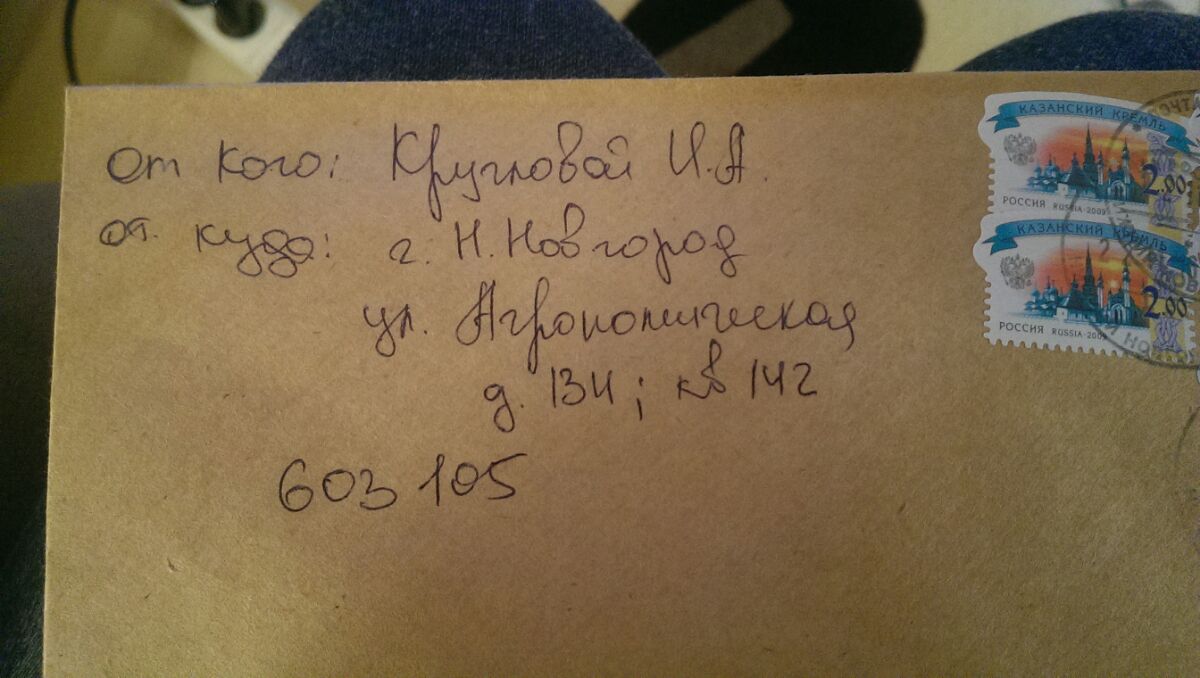 От кого: Кругловой И.А.
от. куда: г. Н.Новгород
ул. Агрономическая
д. 134; кв 142
603105
КАЗАНСКИЙ КРЕМЛЬ
2.00
РОССИЯ RUSSIA·2009
КАЗАНСКИЙ КРЕМЛЬ
2.00
РОССИЯ RUSSIA·2009